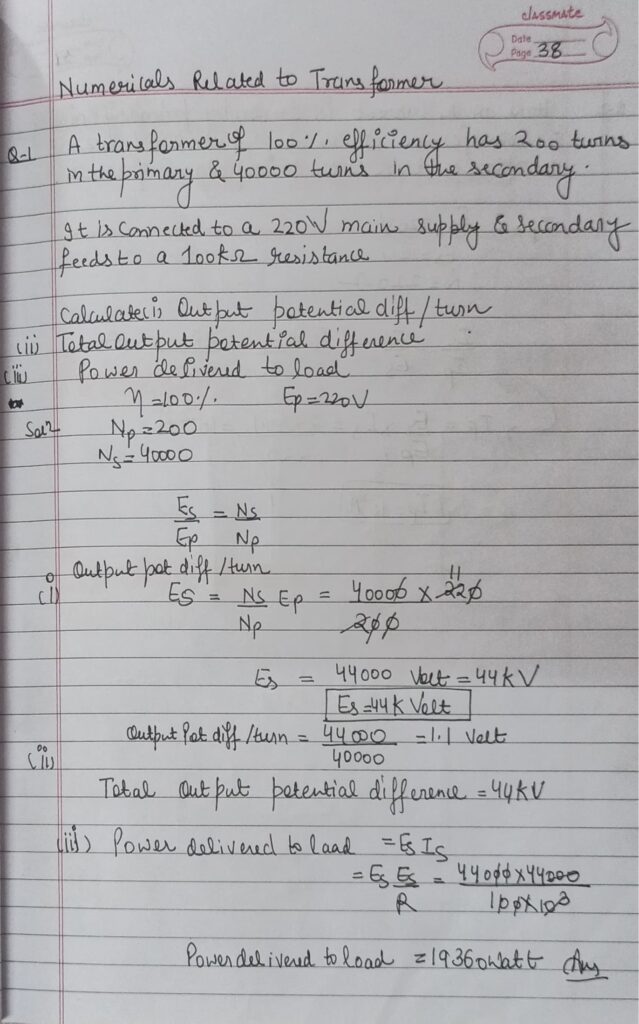 classmate
Date
Page 38
Numericals Related to Transformer
Q-1 A transformer of 100%. efficiency has 200 turns
in the primary & 40000 turns in the secondary.
It is connected to a 220V main supply & secondary
feeds to a 100kΩ resistance
Calculate (i) Output potential diff / turn
(ii) Total output potential difference
(iii) Power delivered to load
η = 100%. Ep = 220V
Solⁿ Np = 200
Ns = 40000
Es/Ep = Ns/Np
(i) Output pot diff / turn
ES = Ns/Np Ep = 40000 × 220/200 11
Es = 44000 Volt = 44kV
Es = 44K Volt
Output Pot diff / turn = 44000/40000 = 1.1 Volt
(ii)
Total Output potential difference = 44KV
(iii) Power delivered to load = Es Is
= Es Es/R = 44000 × 44000/100 × 10³
Power delivered to load = 19360 watt Ans